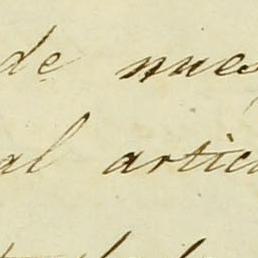 de nues
al artic